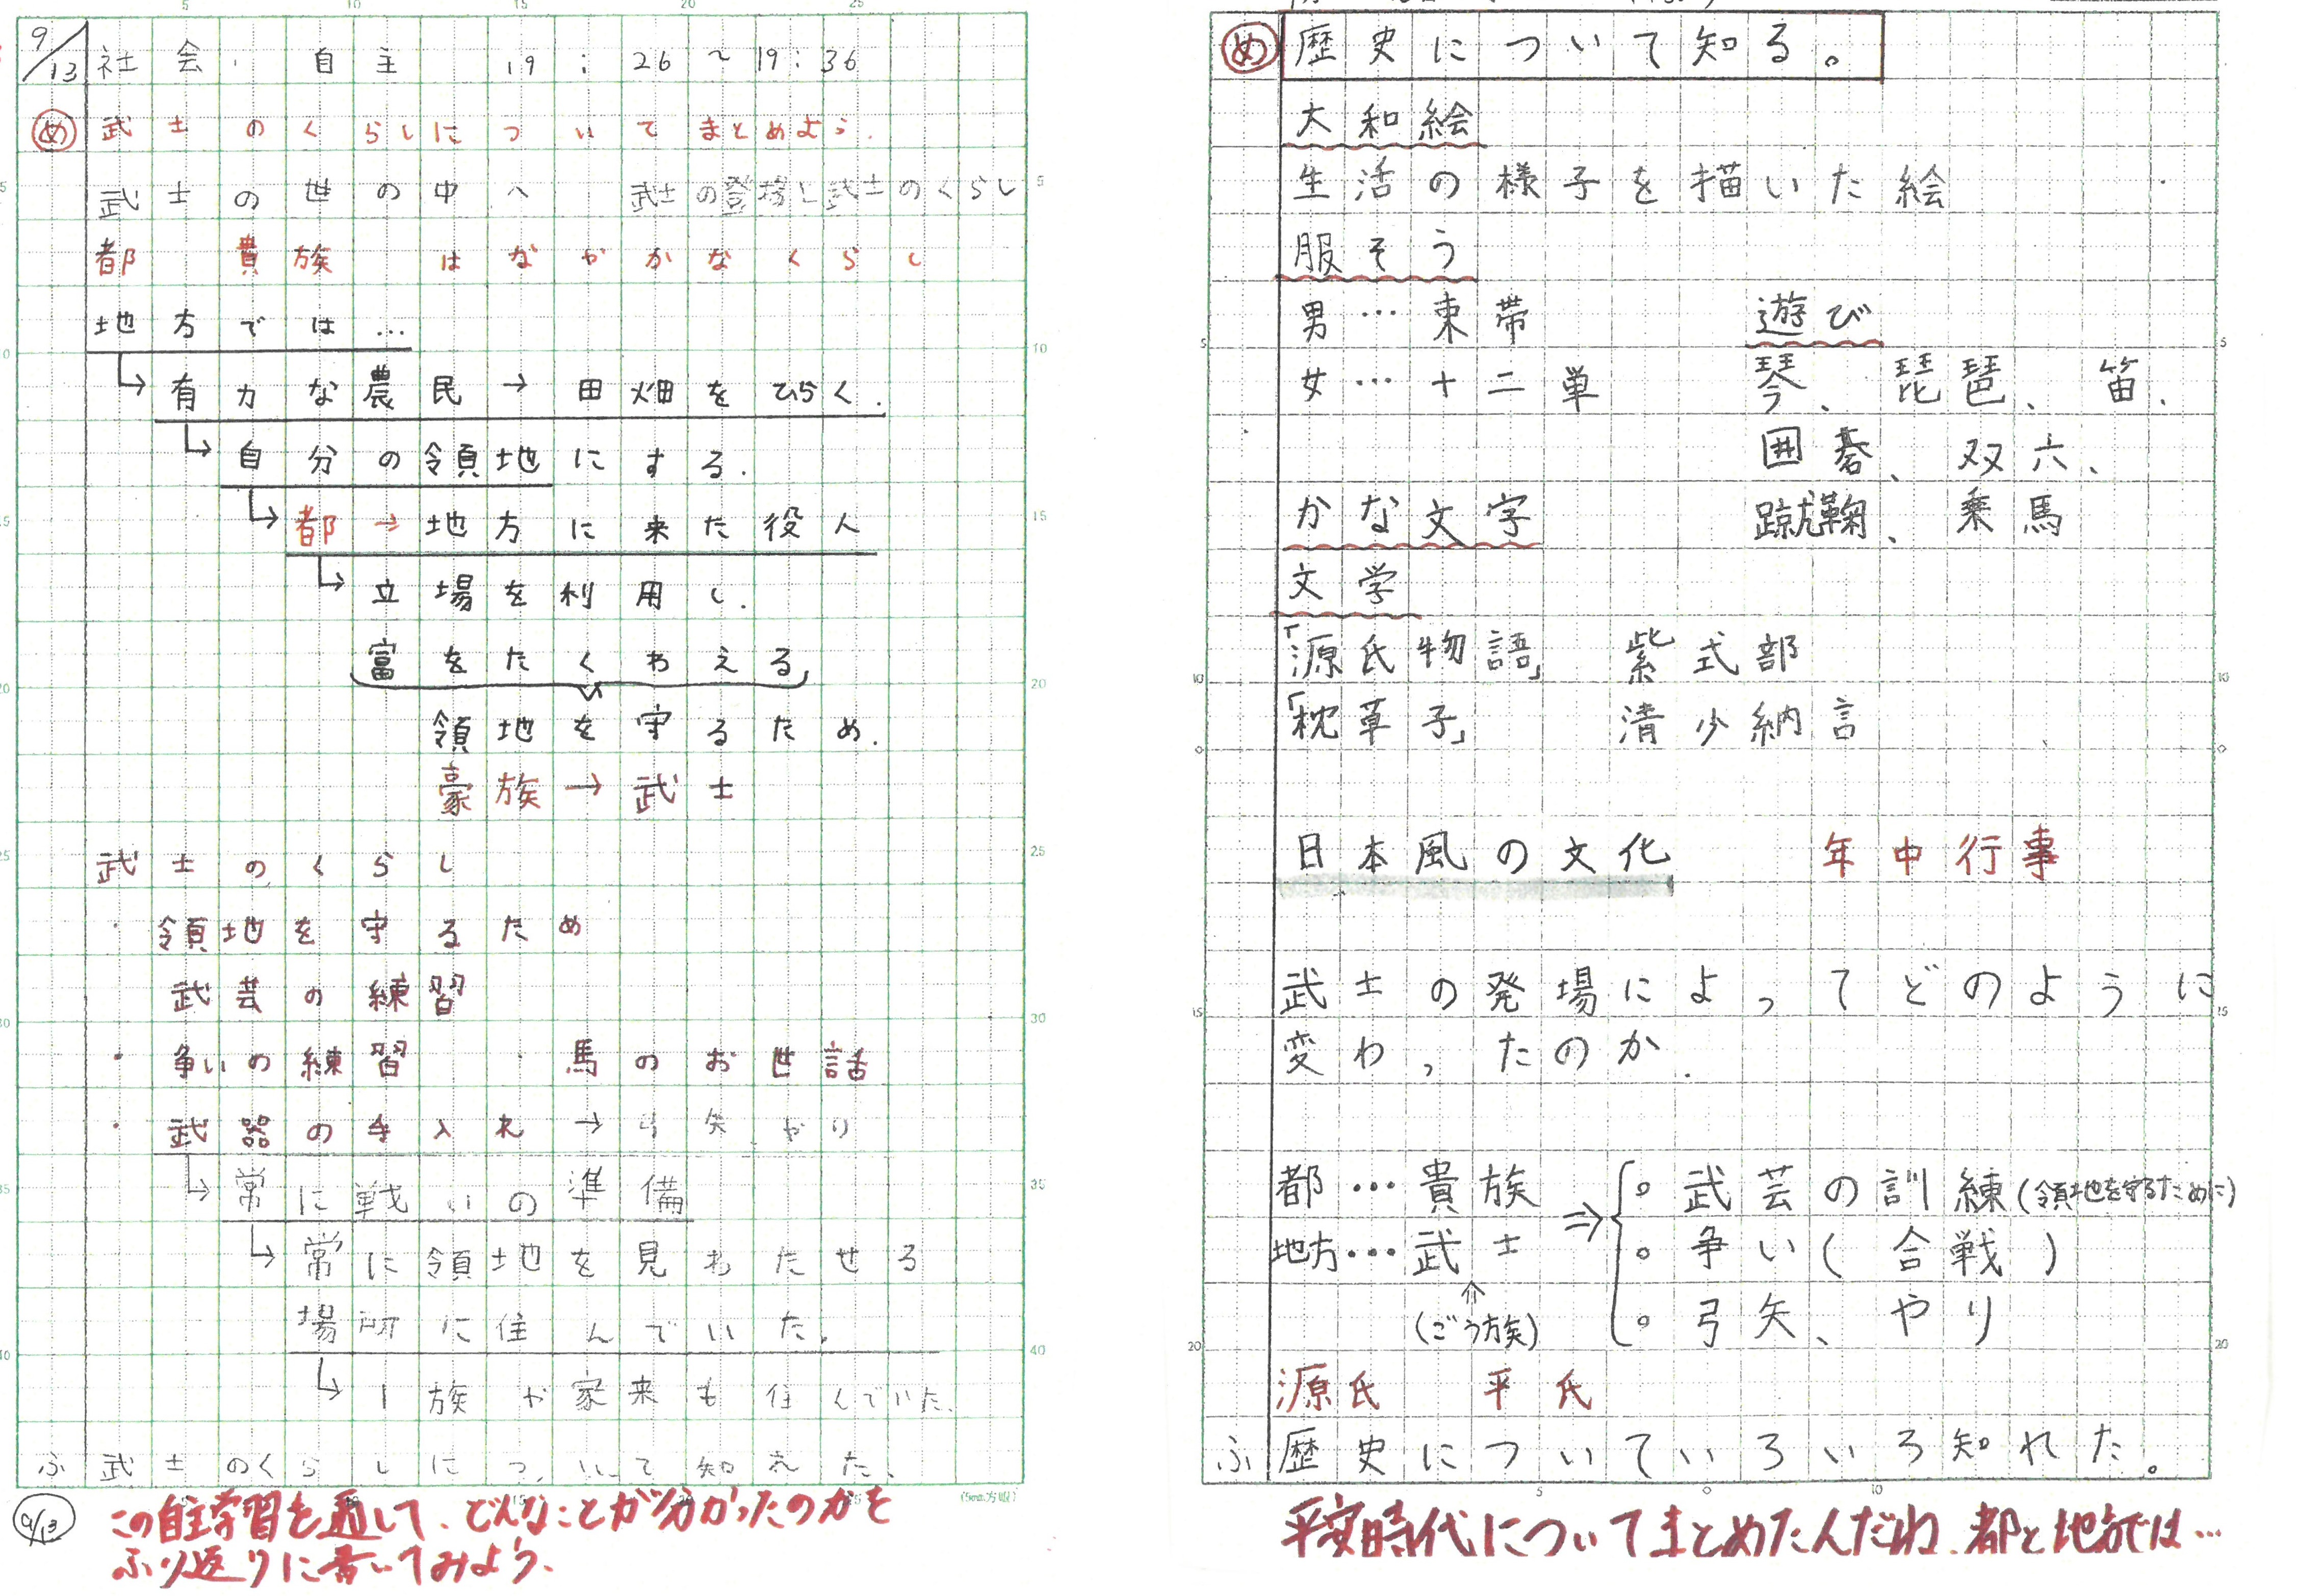 9/13 社会 自主 19:26～19:36
め 武士のくらしについてまとめよう.
武士の世の中へ 武士の登場と武士のくらし
都 貴族 はなやかなくらし
地方では…
有力な農民→田畑をひらく.
自分の領地にする.
都→地方に来た役人
立場を利用し.
富をたくわえる
領地を守るため.
豪族→武士
武士のくらし
・領地を守るため
武芸の練習
・争いの練習 ・馬のお世話
・武器の手入れ→弓矢、やり
常に戦いの準備
常に領地を見わたせる
場所に住んでいた。
1族や家来も住んでいた.
ふ 武士のくらしについて知れた.
9/13 この自主学習を通して、どんなことが分かったのかを
ふり返りに書いてみよう。
(5mm方眼)
め 歴史について知る。
大和絵
生活の様子を描いた絵
服そう
男…束帯
女…十二単
遊び
琴、琵琶、笛、
囲碁、双六、
蹴鞠、乗馬
かな文字
文学
「源氏物語」 紫式部
「枕草子」 清少納言
日本風の文化 年中行事
武士の発場によってどのように
変わったのか.
都…貴族
地方…武士
⇑
(ごう族)
⇒
。武芸の訓練(領地を守るために)
。争い(合戦)
。弓矢、やり
源氏 平氏
ふ 歴史についていろいろ知れた。
平安時代についてまとめたんだね、都と地方では…